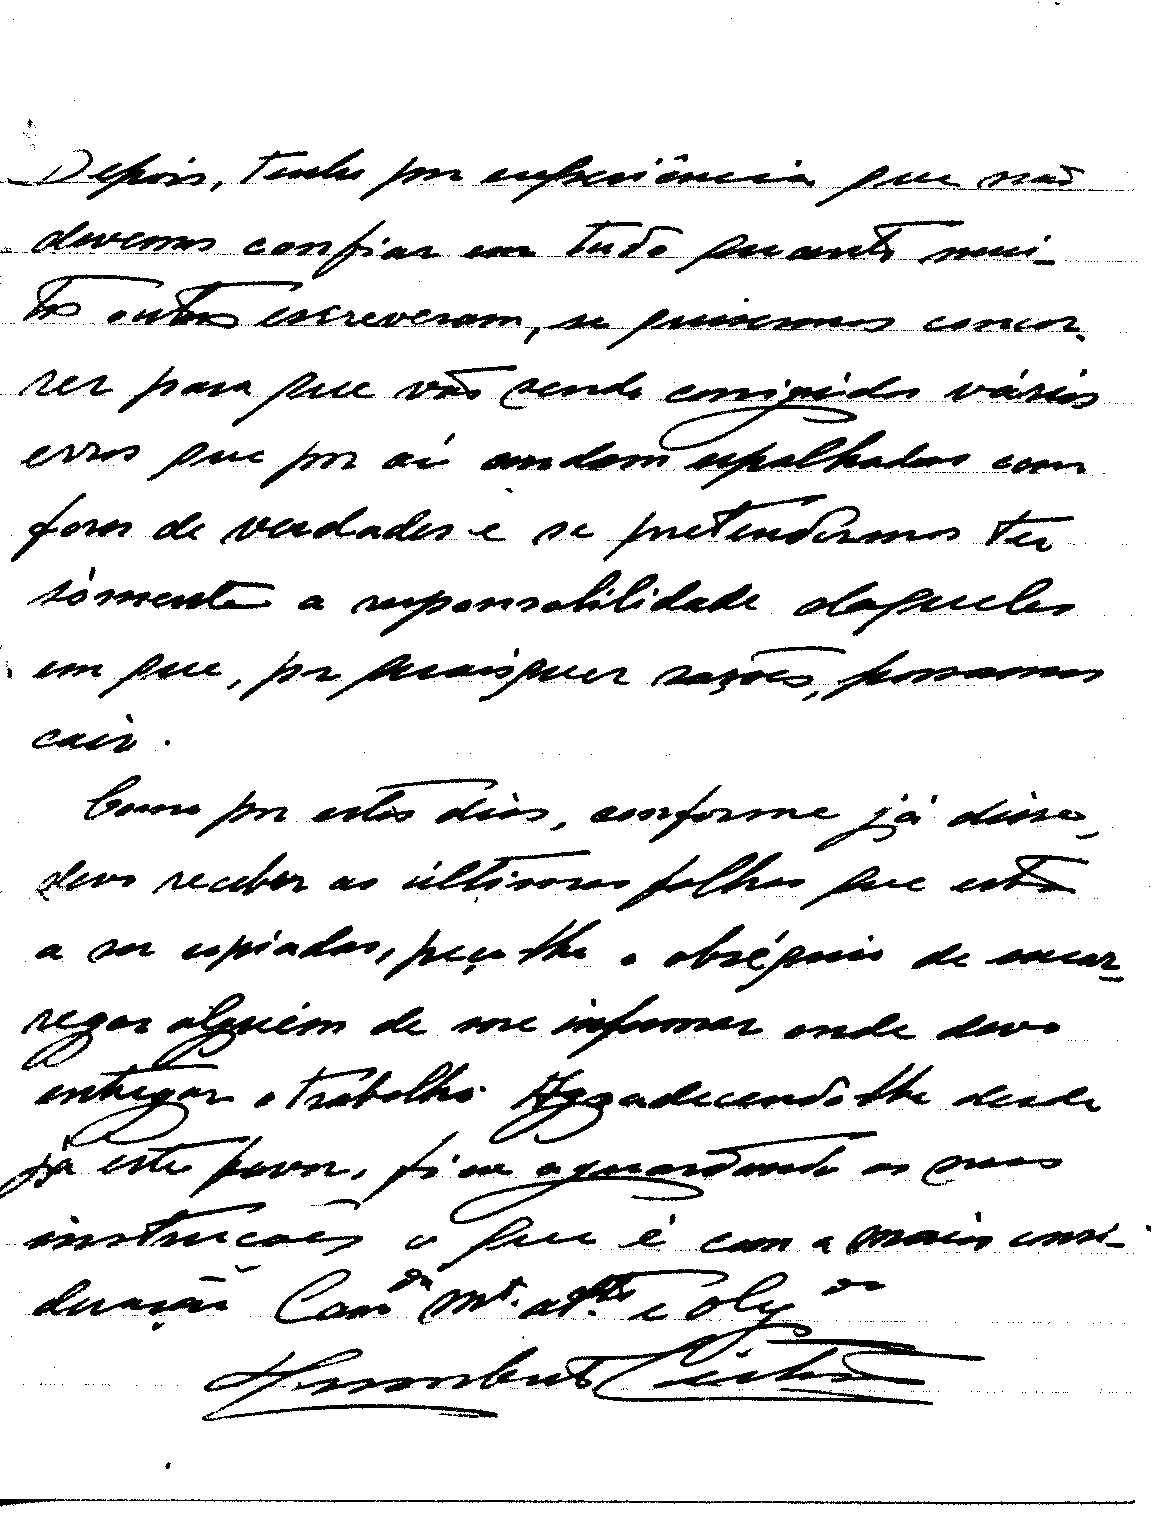 Depois, tenho por experiência que não
devemos confiar em tudo quanto mui-
tos outros escreveram, se quisermos concor-
rer para que vão sendo corrigidos vários
erros que por aí andam espalhados com
foros de verdades e se pretendermos ter
sòmente a responsabilidade daqueles
em que, por quaisquer razões, possamos
cair.
Como por estes dias, conforme já disse,
devo receber as últimas folhas que estão
a ser copiadas, peço-lhe o obséquio de encar-
regar alguém de me informar onde devo
entregar o trabalho. Agradecendo-lhe desde
já este favor, fico aguardando as suas
instruções o que é com a mais consi-
deração Cam.da M.t. at.to e Obg.do
Humberto